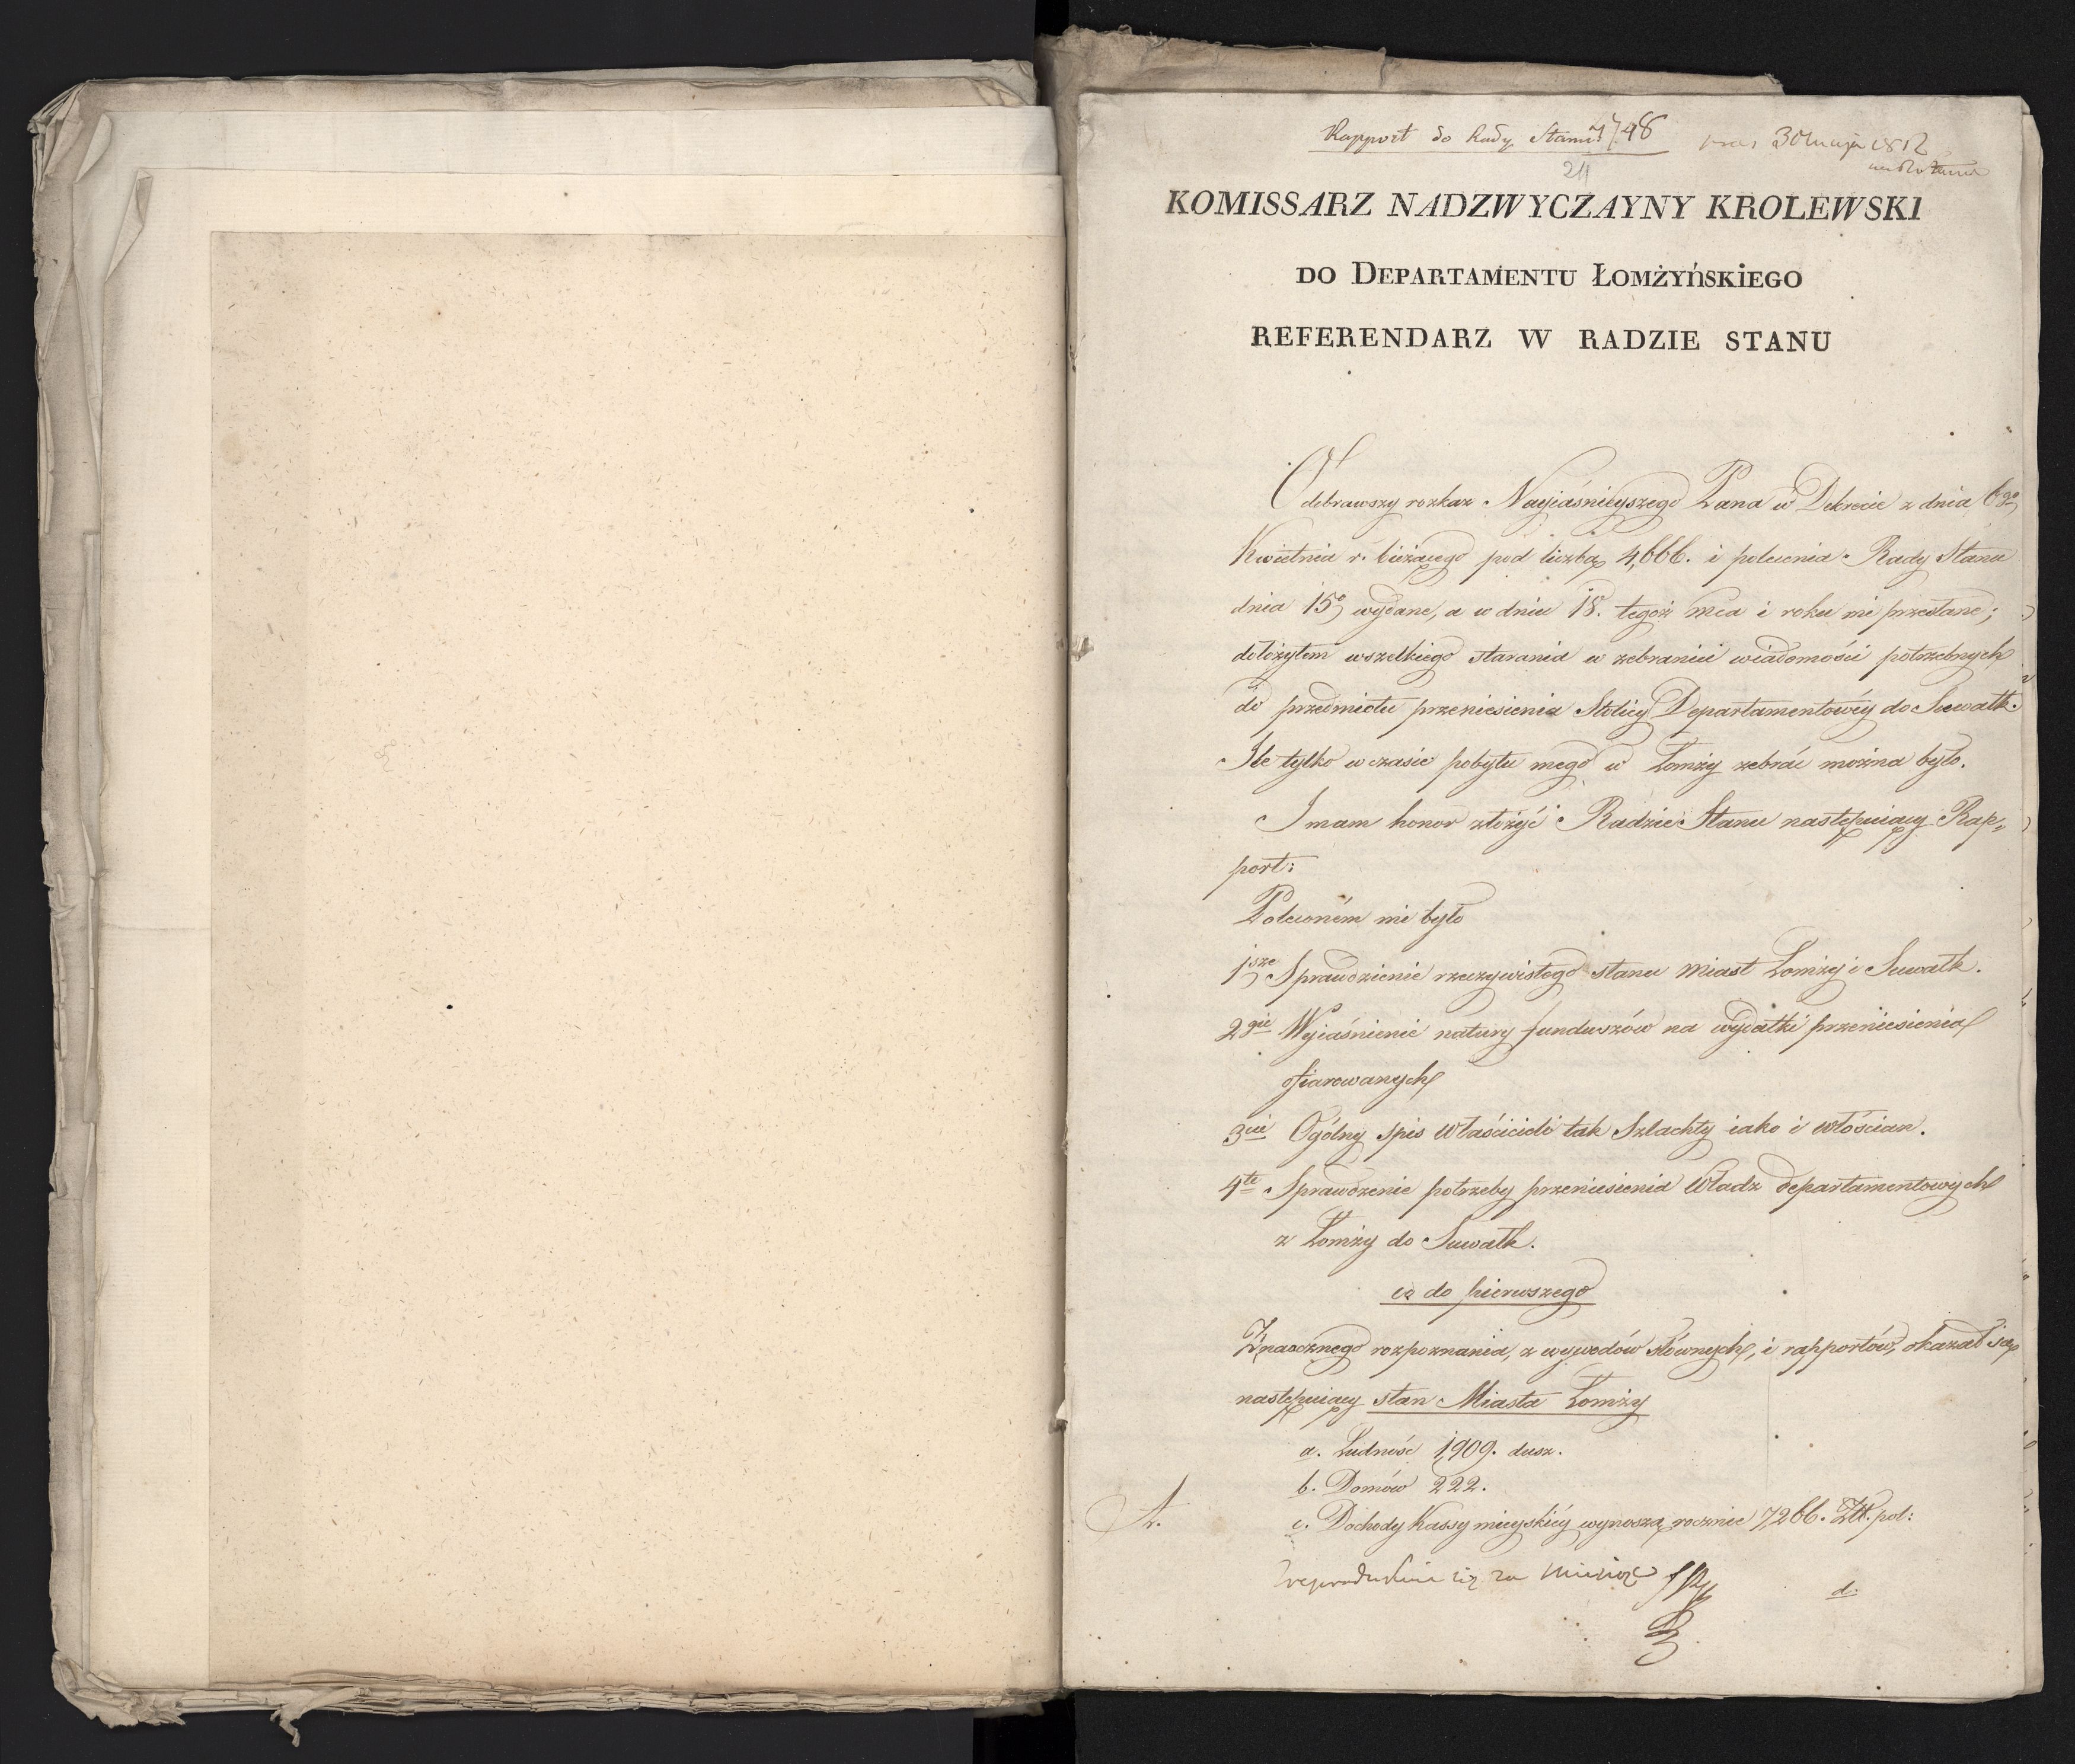 Rapport do Rady Stanu 4748
30 maja 1812
211
KOMISSARZ NADZWYCZAYNY KROLEWSKI
DO DEPARTAMENTU ŁOMŻYńSKiEGO
REFERENDARZ W RADZIE STANU
Odebrawszy rozkaz Nayiaśnieyszego Pana w Dekrecie z dnia 6go
Kwietnia r. bieżącego pod liczbą 4,666. i polecenia Rady Stanu
dnia 15o wydane, a w dniu 18. tegoż mca i roku mi przesłane;
dołożyłem wszelkiego starania w zebraniu wiadomości potrzebnych
do przedmiotu przeniesienia Stolicy Departamentowéy do Suwałk.
Ile tylko w czasie pobytu mego w Łomży zebrać można było.
I mam honor złożyć Radzie Stanu następuiący Rap„
port:
Poleconém mi było
1sze Sprawdzienie rzeczywistego stanu Miast Łomży i Suwałk.
2gie Wyiaśnienie natury funduszów na wydatki przeniesienia
ofiarowanych
3cie Ogólny spis Właścicieli tak Szlachty iako i włościan.
4te Sprawdzenie potrzeby przeniesienia Władz departamentowych
z Łomży do Suwałk.
co do pierwszego
Z naocznego rozpoznania, z wywodów słównych, i rapportów, okazał się
następuiący stan Miasta Łomży
a. Ludność 1,909. dusz.
b. Domów 222.
A.
c. Dochody Kassy mieyskiéy wynoszą rocznie 7,266. Złł. pol:
reprodukuie się za miesiąc
d.